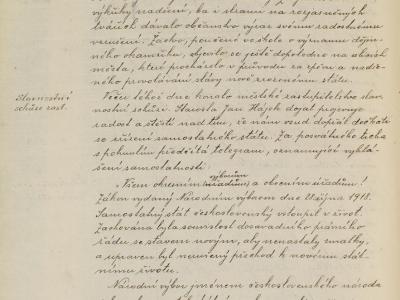 výkřiky nadšení, ba i slzami na rozjasněných
tvářích dávalo občanstvo výraz svému radostnému
vzrušení. Žactvo, poučené ve škole o významu dějin-
ného okamžiku, objevilo se ještě dopoledne na ulicích
města, které procházelo v průvodu za zpěvu a nadšeného
provolávání slávy nově zrozenému státu.
Slavnostní
schůze zast.
Večer téhož dne konalo městské zastupitelstvo slav-
nostní schůzi. Starosta Jan Hájek dojat projevuje
radost a štěstí nad tím, že nám osud dopřál dožíti
se zřízení samostatného státu. Za posvátného ticha
s pohnutím předčítá telegram, oznamující vyhlá-
šení samostatnosti:
„Všem okresním výborům (úřadům) a obecním úřadům!
Zákon vydaný Národním výborem dne 28. října 1918.
Samostatný stát československý vstoupil v život.
Zachována byla souvislost dosavadního právního
řádu se stavem novým, aby nenastaly zmatky,
a upraven byl nerušený přechod k novému stát-
nímu životu.
Národní výbor jménem československého národa